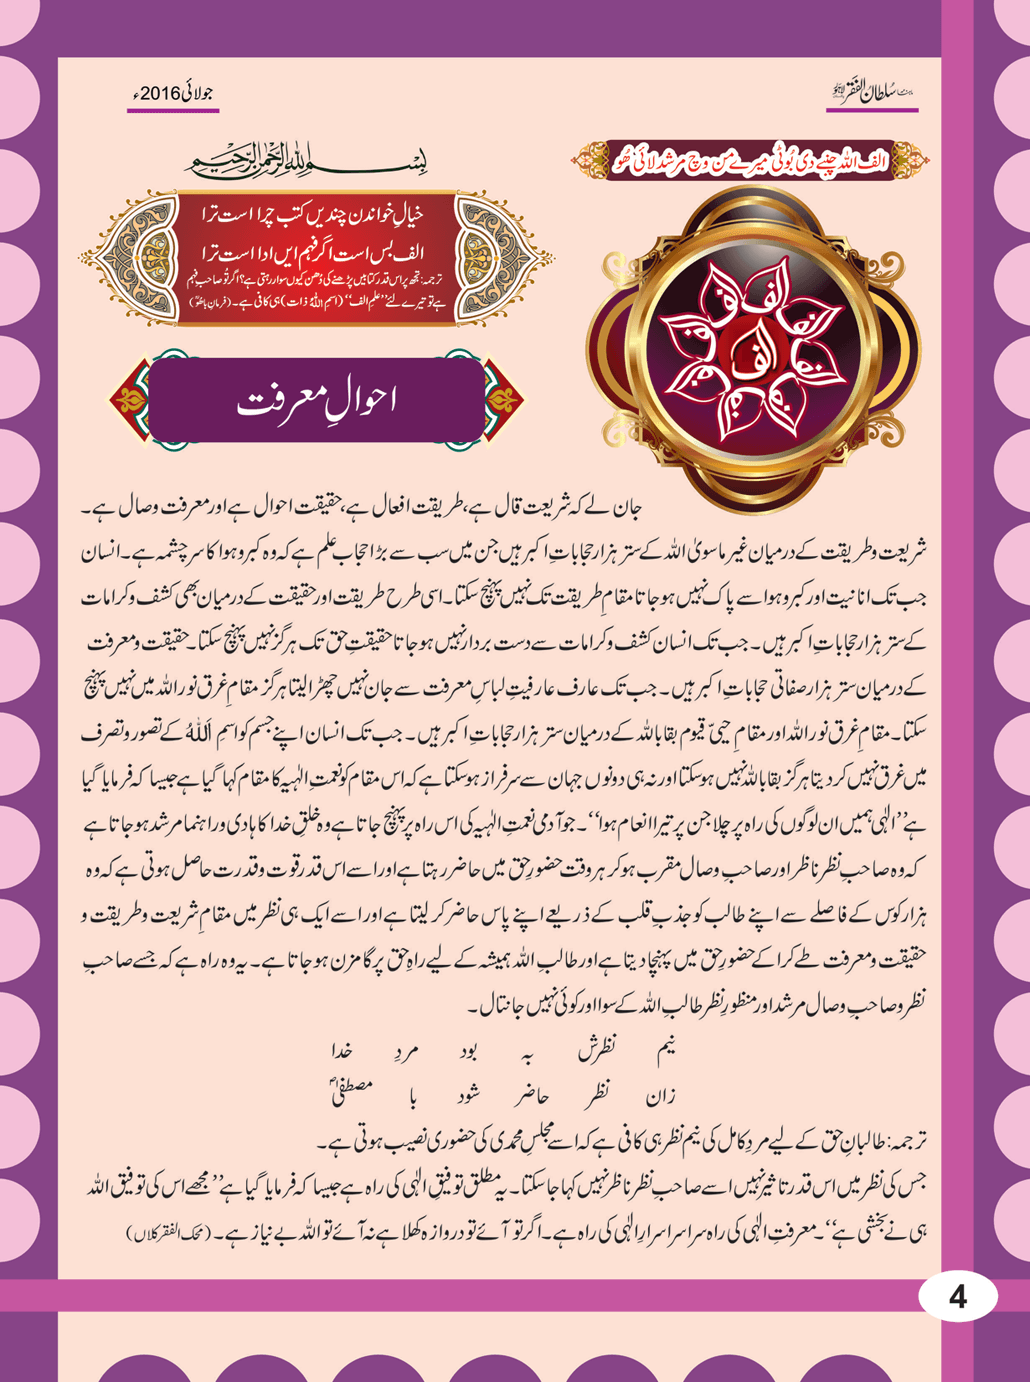 ماہنامہ سُلطان الفقر لاہور
جولائی 2016ء
الف اللہ چنبے دی بُوٹی میرے من وچ مرشد لائی ھُو
بسم اللہ الرحمٰن الرحیم
خیالِ خواندن چندیں کتب چرا است ترا
الف بس است اگر فہم ایں ادا است ترا
ترجمہ: تجھ پر اس قدر کتابیں پڑھنے کی دُھن کیوں سوار رہتی ہے؟ اگر تُو صاحبِ فہم
ہے تو تیرے لئے ’’علمِ الف‘‘ (اسم اللہُ ذات) ہی کافی ہے۔ (فرمانِ باھُوؒ)
الف
الف
الف
الف
الف
الف
الف
الف
الف
الف
احوالِ معرفت
جان لے کہ شریعت قال ہے، طریقت افعال ہے، حقیقت احوال ہے اور معرفت وصال ہے۔
شریعت و طریقت کے درمیان غیر ماسویٰ اللہ کے ستر ہزار حجاباتِ اکبر ہیں جن میں سب سے بڑا حجاب علم ہے کہ وہ کبر و ہوا کا سرچشمہ ہے۔ انسان
جب تک انانیت اور کبر و ہوا سے پاک نہیں ہو جاتا مقامِ طریقت تک نہیں پہنچ سکتا۔ اسی طرح طریقت اور حقیقت کے درمیان بھی کشف و کرامات
کے ستر ہزار حجاباتِ اکبر ہیں۔ جب تک انسان کشف و کرامات سے دست بردار نہیں ہو جاتا حقیقتِ حق تک ہرگز نہیں پہنچ سکتا۔ حقیقت و معرفت
کے درمیان ستر ہزار صفاتی حجاباتِ اکبر ہیں۔ جب تک عارف عارفیتِ لباسِ معرفت سے جان نہیں چھڑا لیتا ہرگز مقامِ غرق نور اللہ میں نہیں پہنچ
سکتا۔ مقامِ غرق نور اللہ اور مقامِ حیّ قیوم بقا باللہ کے درمیان ستر ہزار حجاباتِ اکبر ہیں۔ جب تک انسان اپنے جسم کو اسمِ اَللّٰہُ کے تصور و تصرف
میں غرق نہیں کر دیتا ہرگز بقا باللہ نہیں ہو سکتا اور نہ ہی دونوں جہان سے سرفراز ہو سکتا ہے کہ اس مقام کو نعمتِ الٰہیہ کا مقام کہا گیا ہے جیسا کہ فرمایا گیا
ہے ’’الٰہی ہمیں ان لوگوں کی راہ پر چلا جن پر تیرا انعام ہوا‘‘۔ جو آدمی نعمتِ الٰہیہ کی اس راہ پر پہنچ جاتا ہے وہ خلقِ خدا کا ہادی و راہنما مرشد ہو جاتا ہے
کہ وہ صاحبِ نظر ناظر اور صاحبِ وصال مقرب ہو کر ہر وقت حضورِ حق میں حاضر رہتا ہے اور اسے اس قدر قوت و قدرت حاصل ہوتی ہے کہ وہ
ہزار کوس کے فاصلے سے اپنے طالب کو جذبِ قلب کے ذریعے اپنے پاس حاضر کر لیتا ہے اور اسے ایک ہی نظر میں مقامِ شریعت و طریقت و
حقیقت و معرفت طے کرا کے حضورِ حق میں پہنچا دیتا ہے اور طالبِ اللہ ہمیشہ کے لیے راہِ حق پر گامزن ہو جاتا ہے۔ یہ وہ راہ ہے کہ جسے صاحبِ
نظر و صاحبِ وصال مرشد اور منظورِ نظر طالبِ اللہ کے سوا اور کوئی نہیں جانتال۔
نیم نظرش بہ بود مردِ خدا
زان نظر حاضر شود با مصطفیٰؐ
ترجمہ: طالبانِ حق کے لیے مردِ کامل کی نیم نظر ہی کافی ہے کہ اسے مجلسِ محمدی کی حضوری نصیب ہوتی ہے۔
جس کی نظر میں اس قدر تاثیر نہیں اسے صاحبِ نظر ناظر نہیں کہا جا سکتا۔ یہ مطلق توفیقِ الٰہی کی راہ ہے جیسا کہ فرمایا گیا ہے ’’مجھے اس کی توفیق اللہ
ہی نے بخشی ہے‘‘۔ معرفتِ الٰہی کی راہ سراسر اسرارِ الٰہی کی راہ ہے۔ اگر تُو آئے تو دروازہ کھلا ہے نہ آئے تو اللہ بے نیاز ہے۔ (محک الفقر کلاں)
4